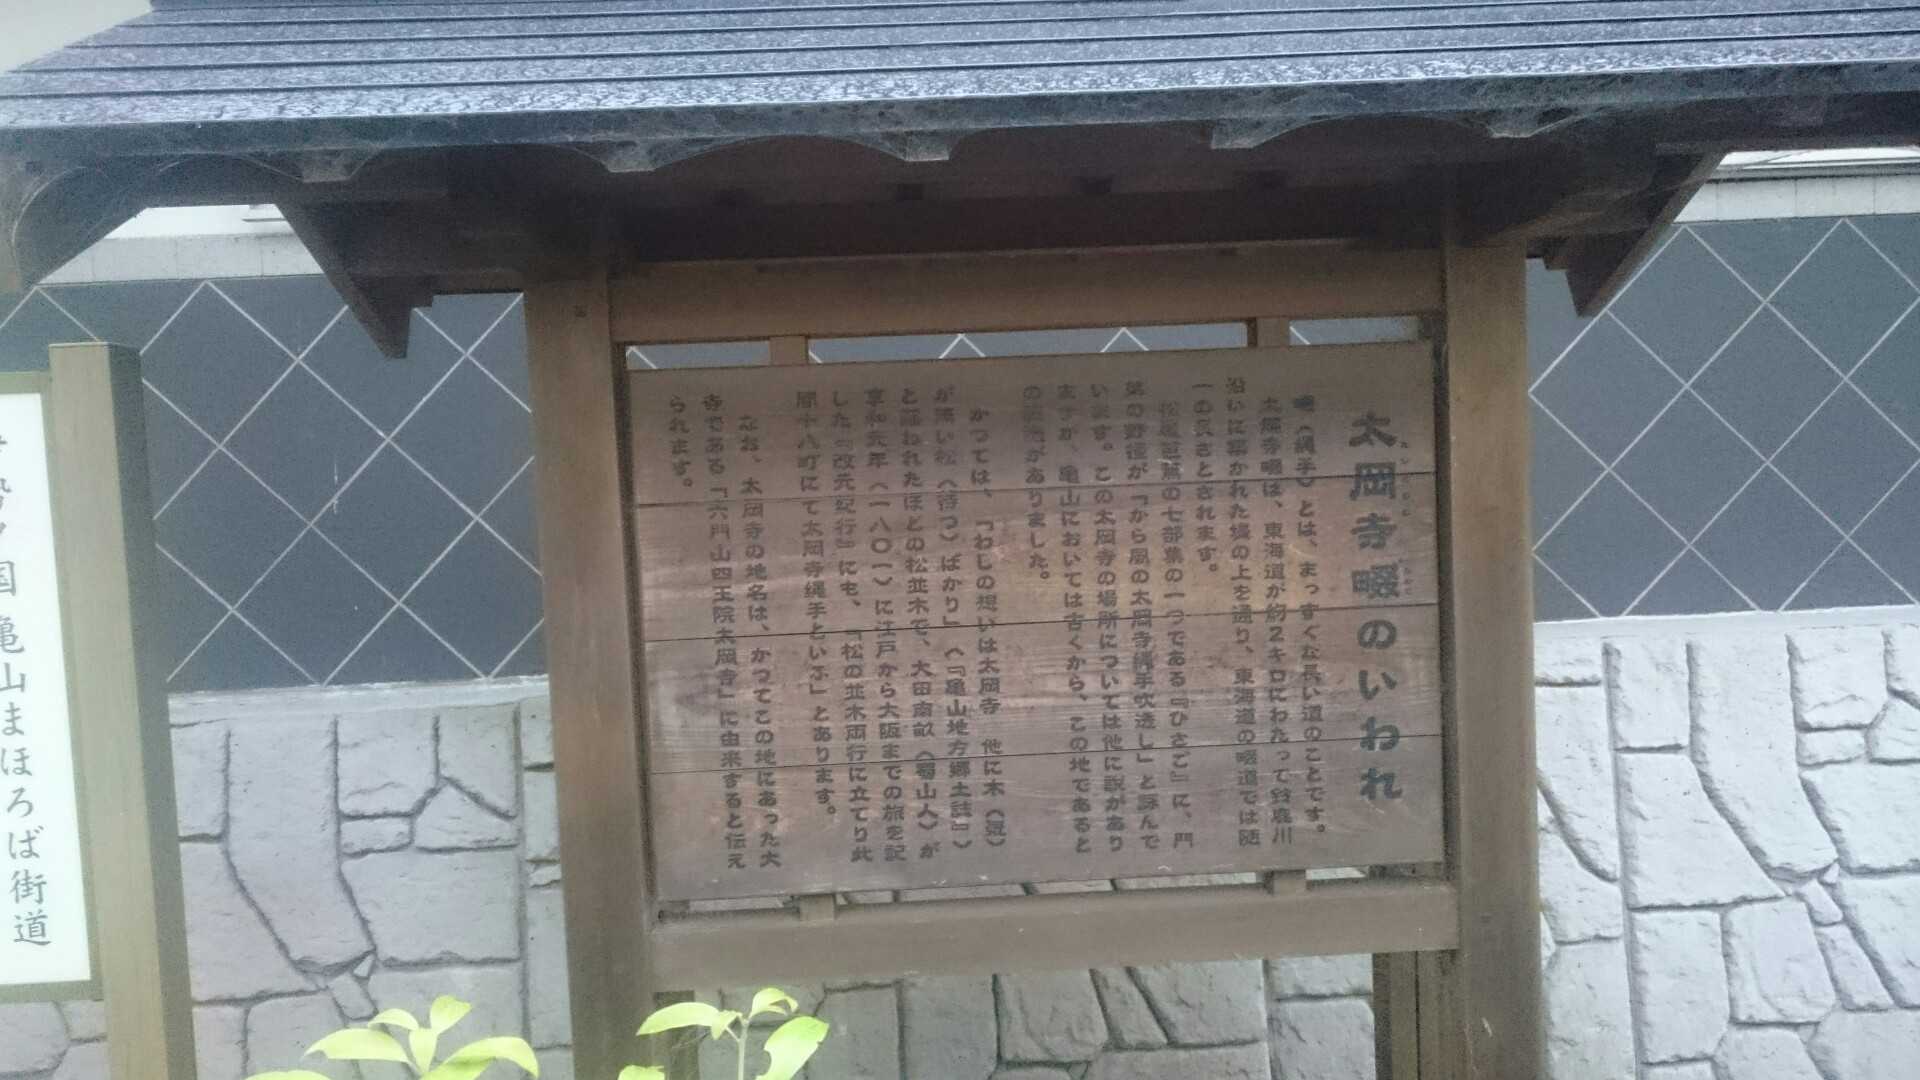 太岡寺畷のいわれ
畷（縄手）とは、まっすぐな長い道のことです。
太岡寺畷は、東海道が約2キロにわたって鈴鹿川
沿いに築かれた堤の上を通り、東海道の畷道では随
一の長さとされます。
松尾芭蕉の七部集の一つである『ひさご』に、門
弟の野径が「から風の太岡寺縄手吹透し」と詠んで
います。この太岡寺の場所については他に説があり
ますが、亀山においては古くから、この地であると
の認識がありました。
かつては、「わしの想いは太岡寺　他に木（気）
が無い松（待つ）ばかり」（『亀山地方郷土誌』）
と謡われたほどの松並木で、大田南畝（蜀山人）が
享和元年（一八〇一）に江戸から大阪までの旅を記
した『改元紀行』にも、「松の並木両行に立てり此
間十八町にて太岡寺縄手といふ」とあります。
なお、太岡寺の地名は、かつてこの地にあった大
寺である「六門山四王院太岡寺」に由来すると伝え
られます。
国亀山まほろば街道